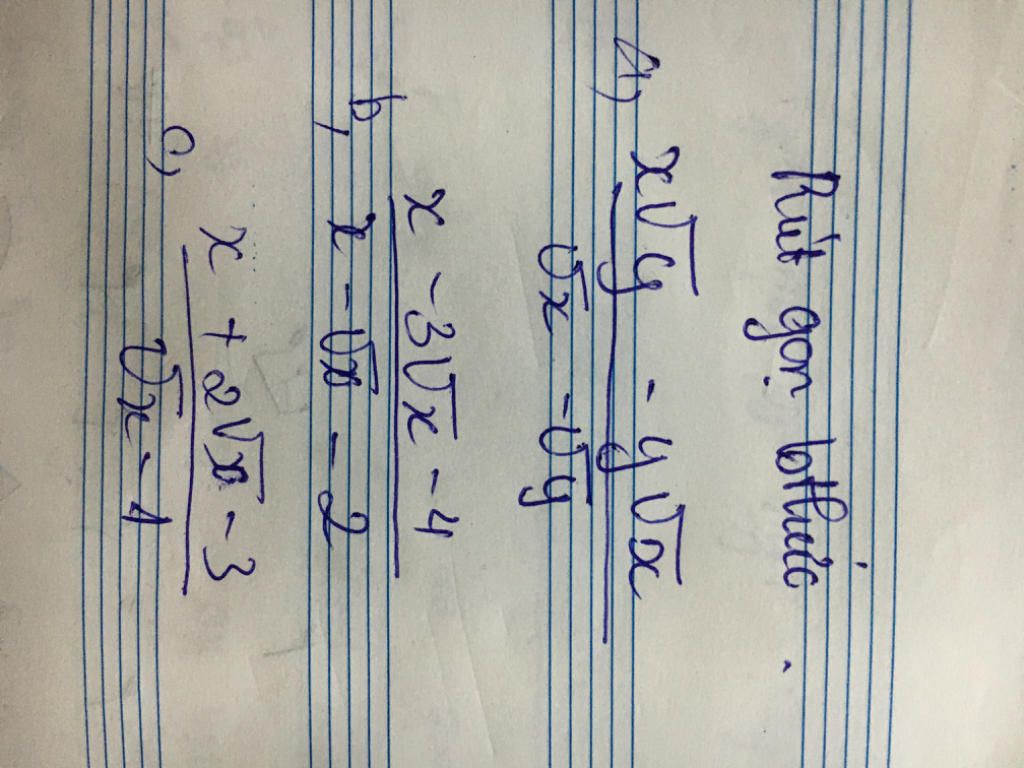 Rút gọn bthức.
a, x√y - y√x
√x - √y
b, x - 3√x - 4
x - √x - 2
c, x + 2√x - 3
√x - 1